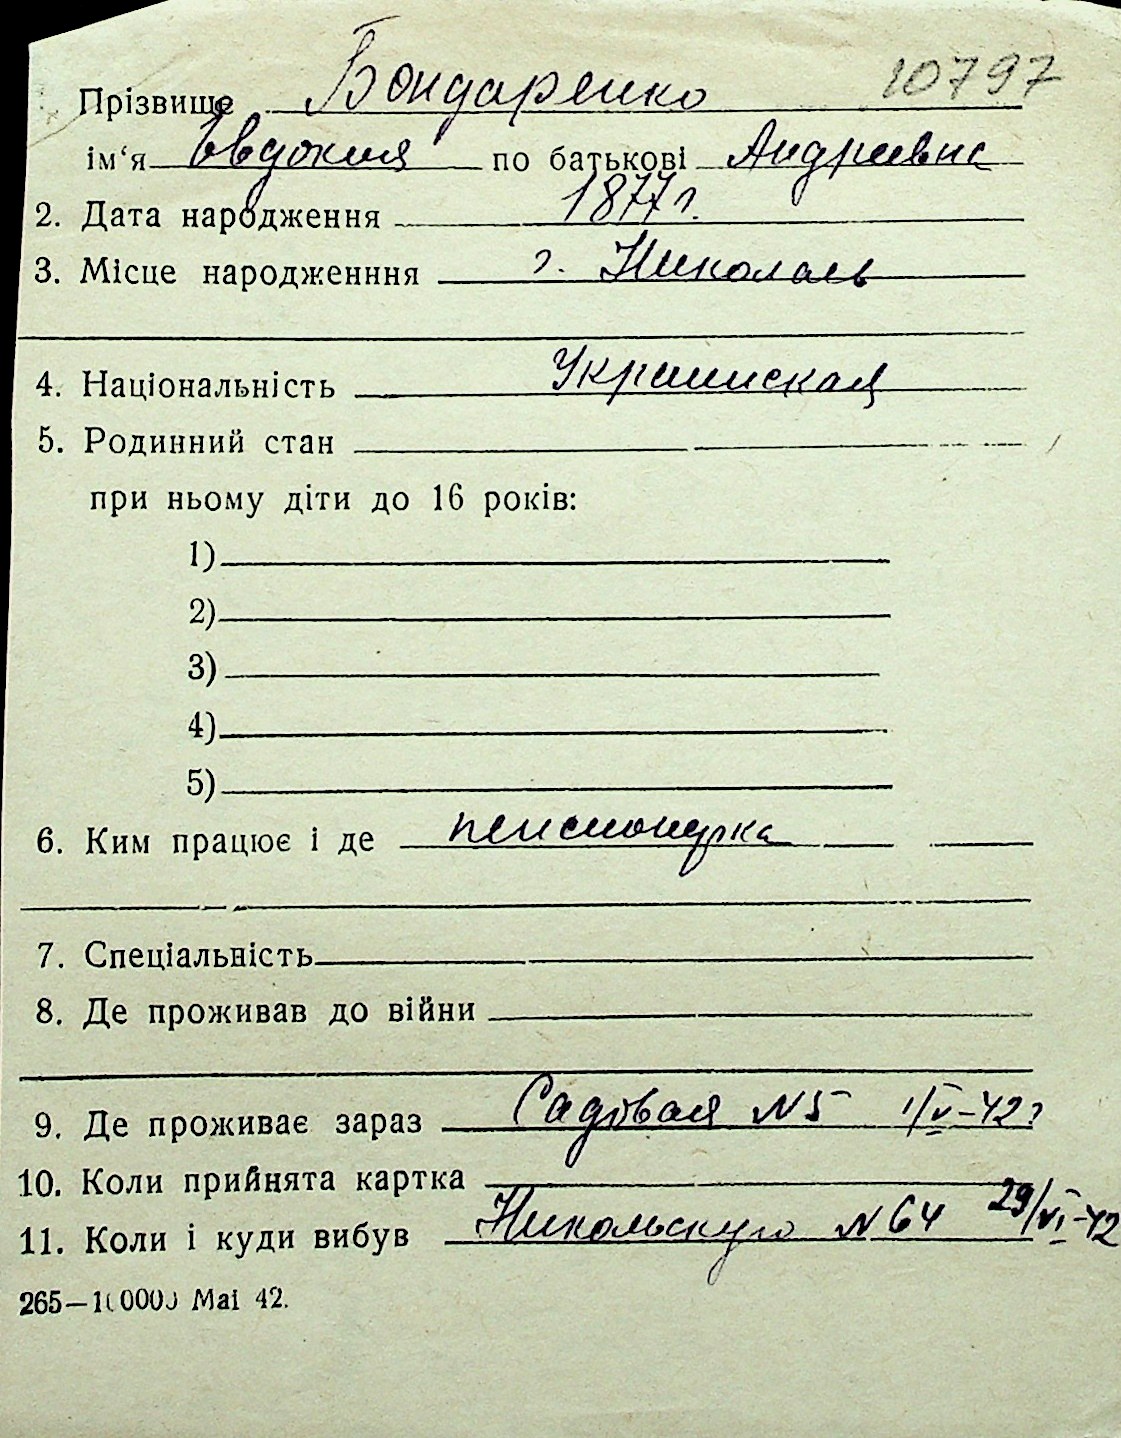 10797
Прізвище Бондаренко
ім‘я Евдокия по батькові Андреевна
2. Дата народження 1877 г.
3. Місце народженння г. Николаев
4. Національність Украинская
5. Родинний стан
при ньому діти до 16 років:
1)
2)
3)
4)
5)
6. Ким працює і де пенсионерка
7. Спеціальність
8. Де проживав до війни
9. Де проживає зараз Садовая N 5 1/V-42 г
10. Коли прийнята картка
11. Коли і куди вибув Никольскую N 64 29/VI-42
265—10000 Mai 42.